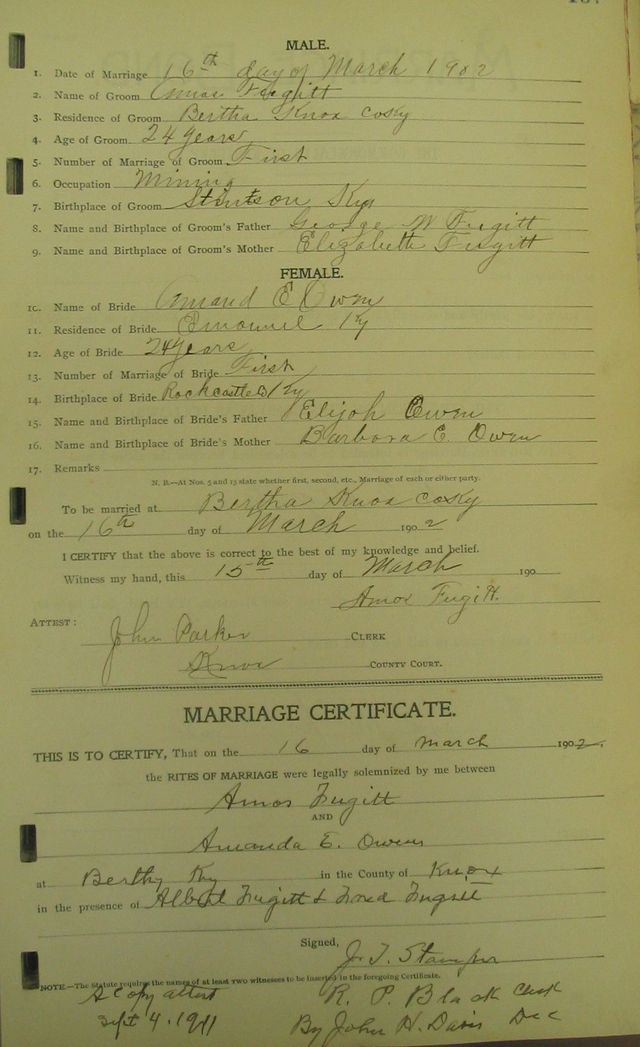 MALE.
1. Date of Marriage 16th day of March 1902
2. Name of Groom Amos Fugitt
3. Residence of Groom Bertha Knox Co Ky
4. Age of Groom 24 years
5. Number of Marriage of Groom First
6. Occupation Mining
7. Birthplace of Groom Stintson Ky
8. Name and Birthplace of Groom's Father George W Fugitt
9. Name and Birthplace of Groom's Mother Elizabeth Fugitt
FEMALE.
10. Name of Bride Amand E Owen
11. Residence of Bride Emanuel Ky
12. Age of Bride 24 years
13. Number of Marriage of Bride First
14. Birthplace of Bride Rockcastle Co Ky
15. Name and Birthplace of Bride's Father Elijah Owen
16. Name and Birthplace of Bride's Mother Barbara E. Owen
17. Remarks
N. B.—At Nos. 5 and 13 state whether first, second, etc., Marriage of each or either party.
To be married at Bertha Knox Co Ky
on the 16th day of March 1902
I CERTIFY that the above is correct to the best of my knowledge and belief.
Witness my hand, this 15th day of March 190
Amos Fugitt.
ATTEST:
John Parker CLERK
Knox COUNTY COURT.
MARRIAGE CERTIFICATE.
THIS IS TO CERTIFY, That on the 16 day of March 1902
the RITES OF MARRIAGE were legally solemnized by me between
Amos Fugitt
AND
Amanda E. Owens
at Bertha Ky in the County of Knox
in the presence of Albert Fugitt & Fugitt
Signed,
J. T. Stamper
NOTE.—The Statute requires the names of at least two witnesses to be inserted in the foregoing Certificate.
A copy attest
R. P. Black Clerk
Sept 4. 1911
By John H. Davis